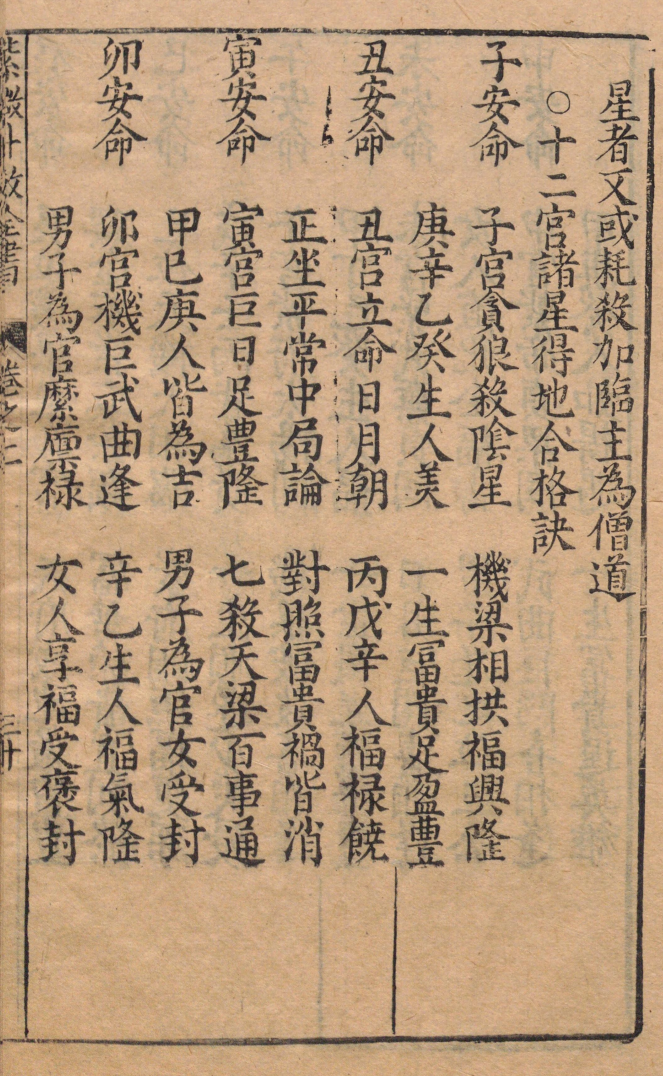 星者又或耗殺加臨主為僧道
○十二宮諸星得地合格訣
子安命 子宮貪狼殺陰星 機梁相拱福興隆
庚辛乙癸生人美 一生富貴足盈豐
丑安命 丑宮立命日月朝 丙戊辛人福祿饒
正坐平常中局論 對照富貴禍皆消
寅安命 寅宮巨日足豐隆 七殺天梁百事通
甲巳庚人皆為吉 男子為官女受封
卯安命 卯宮機巨武曲逢 辛乙生人福氣隆
男子為官縻廩祿 女人享福受褒封
紫微斗數全書 卷之二 三十